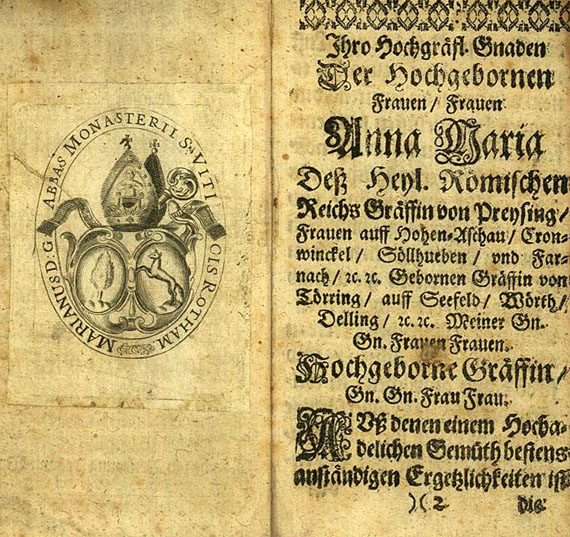 MARIANUS D: G: ABBAS MONASTERII S. VITI CIS ROTHAM
Ihro Hochgräfl. Gnaden
Der Hochgebornen
Frauen / Frauen
Anna Maria
Deß Heyl. Römischen
Reichs Gräffin von Preysing /
Frauen auff Hohen-Aschau / Cron-
winckel / Söllhueben / vnd Far-
nach / ꝛc. ꝛc. Gebornen Gräffin von
Törring / auff Seefeld / Wörth /
Delling / ꝛc. ꝛc. Meiner Gn.
Gn. Frauen Frauen.
Hochgeborne Gräffin /
Gn. Gn. Frau Frau.
AVß denen einem Hocha-
delichen Gemüth bestens-
anständigen Ergetzlichkeiten ist
)( 2 die